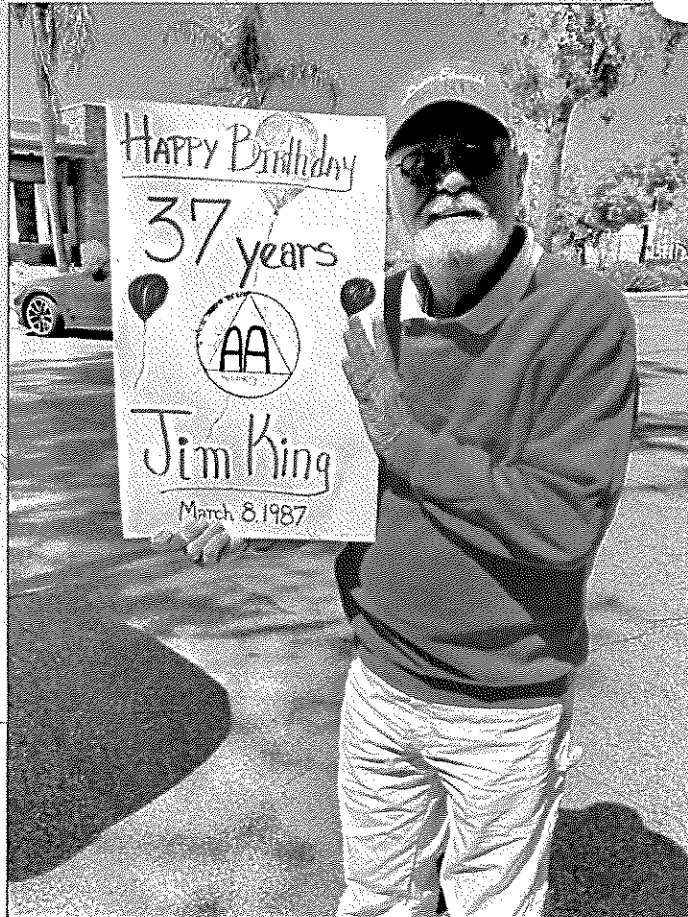 Happy Birthday
37 years
AA
Jim King
March 8, 1987